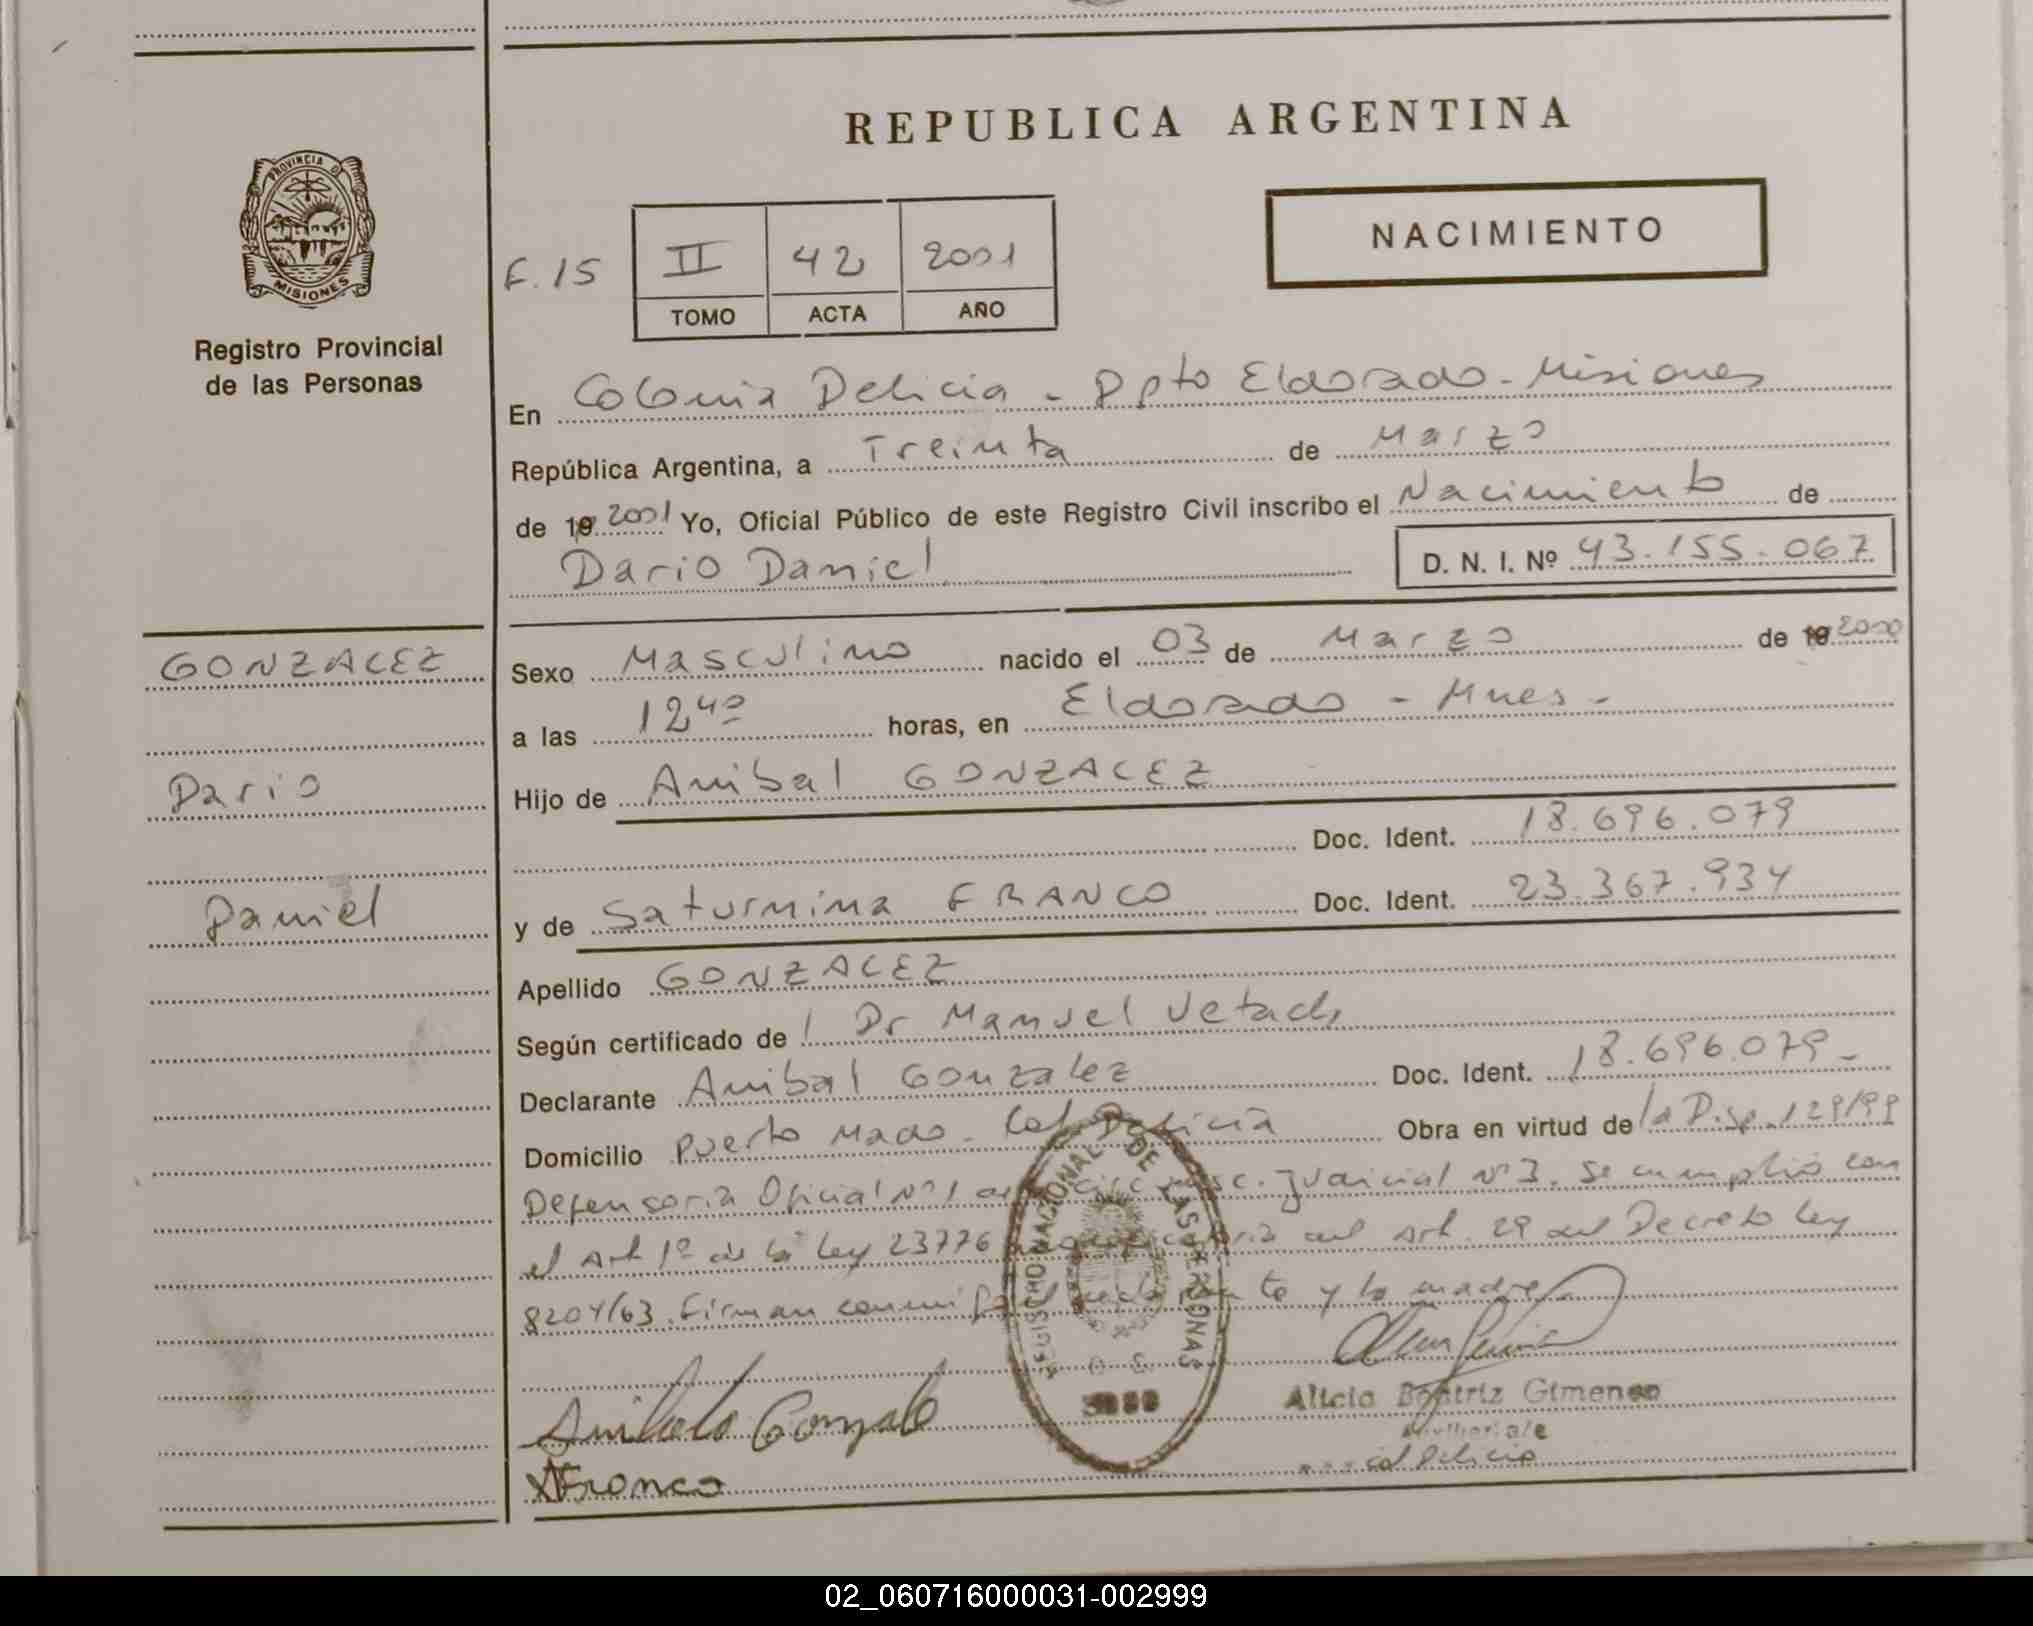 REPUBLICA ARGENTINA
PROVINCIA D
MISIONES
Registro Provincial
de las Personas
NACIMIENTO
F. 15
II 42 2001
TOMO ACTA AÑO
En Colonia Delicia - Dpto Eldorado - Misiones
República Argentina, a Treinta de Marzo
de 19 2001 Yo, Oficial Público de este Registro Civil inscribo el Nacimiento de
Dario Daniel D. N. I. Nº 43.155.067
GONZALEZ
Dario
Daniel
Sexo Masculino nacido el 03 de Marzo de 19 2000
a las 12⁴⁰ horas, en Eldorado - Mnes -
Hijo de Anibal GONZALEZ
Doc. Ident. 18.696.079
y de Saturnina FRANCO Doc. Ident. 23.367.934
Apellido GONZALEZ
Según certificado de Dr Manuel
Declarante Anibal Gonzalez Doc. Ident. 18.696.079 -
Domicilio Puerto Mado - Col. Delicia Obra en virtud de la Disp. 129/99
Defensoria Oficial Nº 1 Judicial Nº 3. Se cumplió con
el Art 1º de la Ley 23776 del Art. 29 del Decreto Ley
8204/63. Firman conmigo el declarante y la madre
REGISTRO NACIONAL DE LAS PERSONAS
Anibal Gonzale
Alicia Beatriz Gimenez
Col Delicia
Franco
02_060716000031-002999